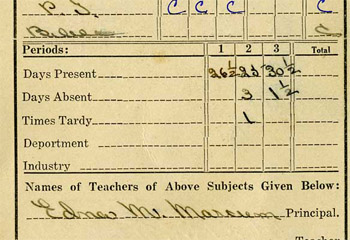 P. T. C C C C
Periods: 1 2 3 Total
Days Present 26½ 25 30½
Days Absent 3 1½
Times Tardy 1
Deportment
Industry
Names of Teachers of Above Subjects Given Below:
Edna M. Marcum Principal.
Teacher